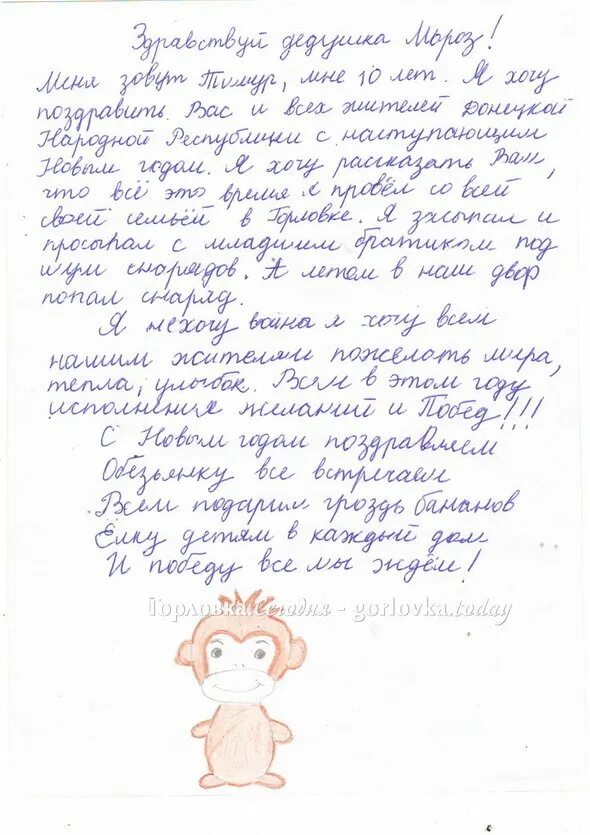 Здравствуй дедушка Мороз!
Меня зовут Тимур, мне 10 лет. Я хочу
поздравить Вас и всех жителей Донецкой
Народной Республики с наступающим
Новым годом. Я хочу рассказать Вам,
что всё это время я провёл со всей
своей семьёй в Горловке. Я засыпал и
просыпал с младшим братиком под
шум снарядов. А летом в наш двор
попал снаряд.
Я нехочу война я хочу всем
нашим жителям пожелать мира,
тепла, улыбок. Всем в этом году
исполнения желаний и Побед!!!
С Новым годом поздравляем
Обезьянку все встречаем
Всем подарим гроздь бананов
Ёлку детям в каждый дом
И победу все мы ждём!
Горловка сегодня - gorlovka.today